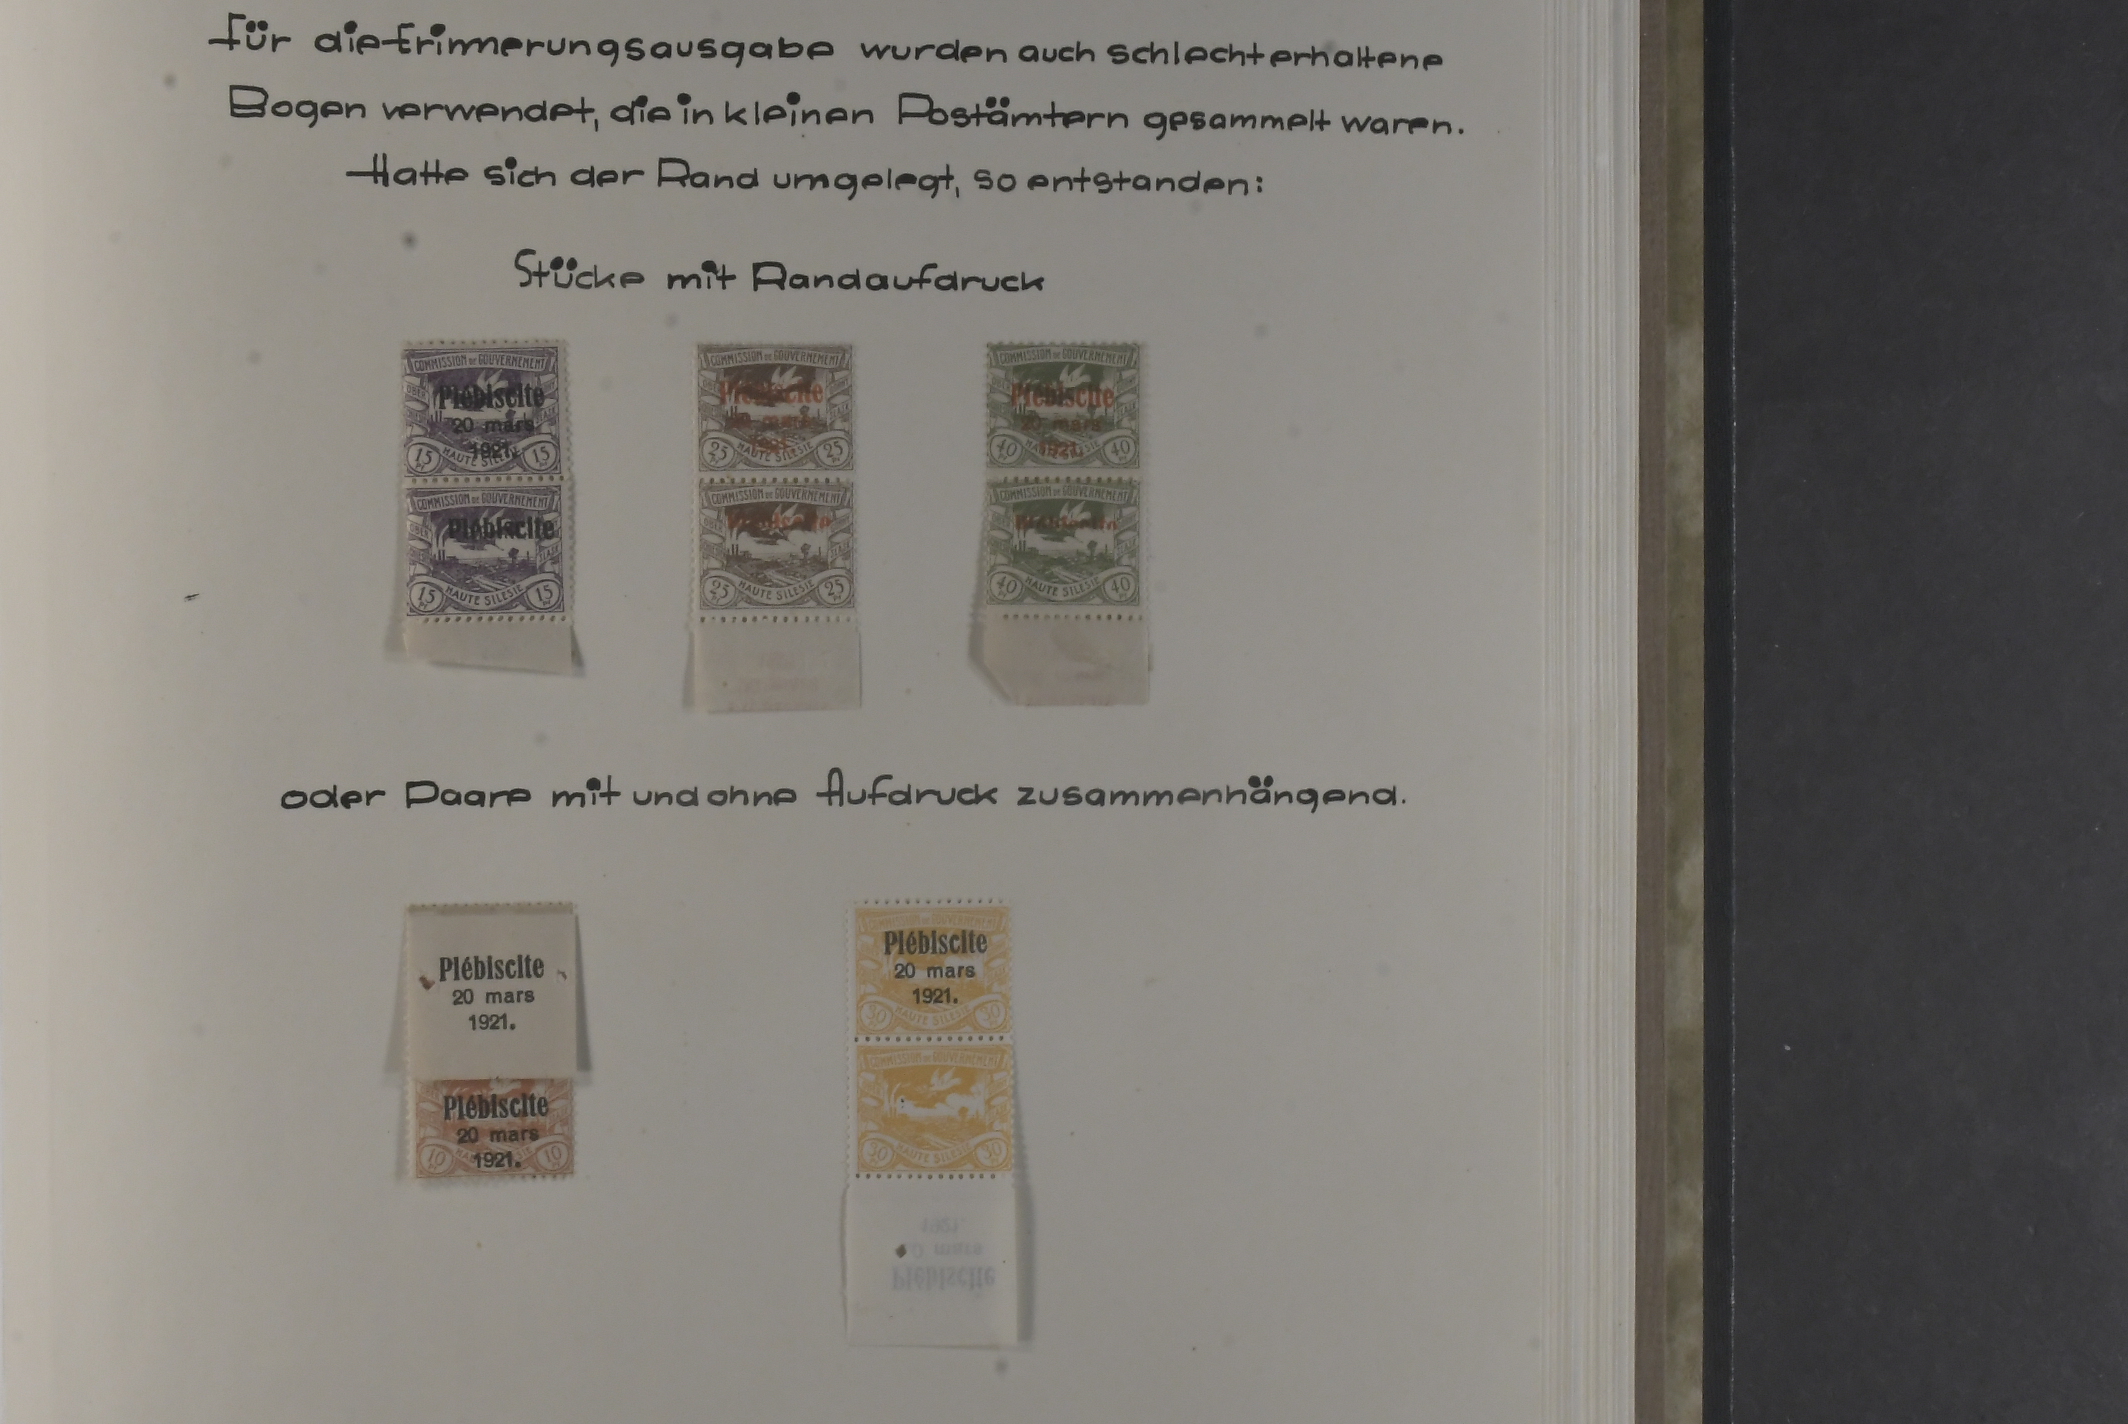 Für die Erinnerungsausgabe wurden auch schlecht erhaltene
Bogen verwendet, die in kleinen Postämtern gesammelt waren.
Hatte sich der Rand umgelegt, so entstanden:
Stücke mit Randaufdruck
COMMISSION DE GOUVERNEMENT
Plébiscite
20 mars
1921.
15 HAUTE SILÉSIE 15
COMMISSION DE GOUVERNEMENT
Plébiscite
15 HAUTE SILÉSIE 15
COMMISSION DE GOUVERNEMENT
Plébiscite
20 mars
1921.
25 HAUTE SILÉSIE 25
COMMISSION DE GOUVERNEMENT
25 HAUTE SILÉSIE 25
COMMISSION DE GOUVERNEMENT
Plébiscite
20 mars
1921.
40 HAUTE SILÉSIE 40
COMMISSION DE GOUVERNEMENT
40 HAUTE SILÉSIE 40
oder Paare mit und ohne Aufdruck zusammenhängend.
Plébiscite
20 mars
1921.
Plébiscite
20 mars
1921.
10 10
COMMISSION DE GOUVERNEMENT
Plébiscite
20 mars
1921.
30 HAUTE SILÉSIE 30
COMMISSION DE GOUVERNEMENT
30 HAUTE SILÉSIE 30
1921.
20 mars
Plébiscite